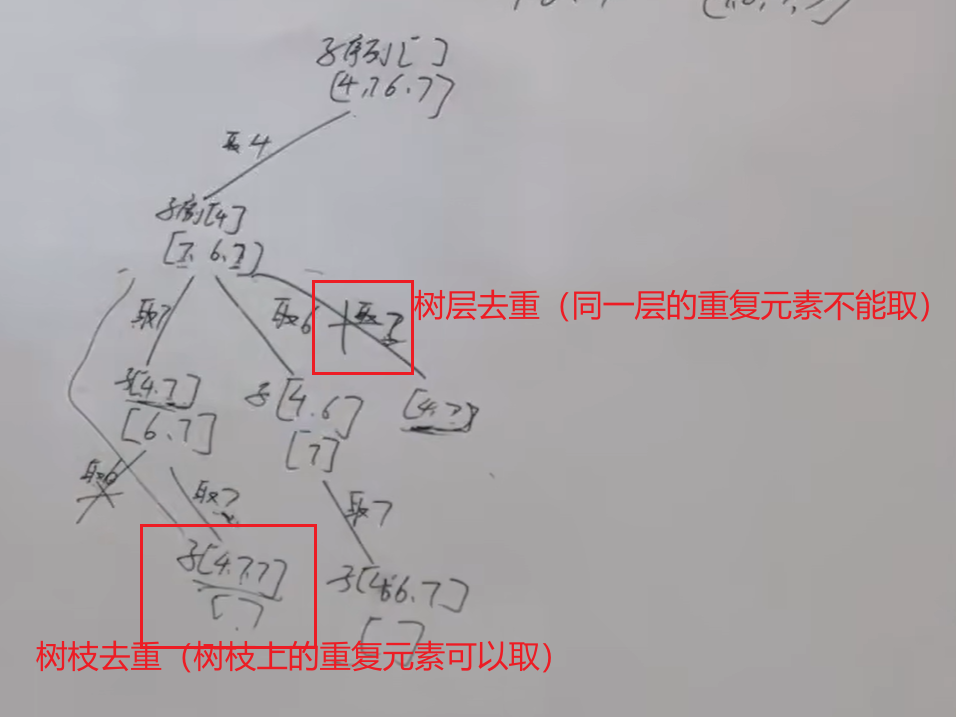 子序列[ ]
[4,7,6,7]
取4
子序列[4]
[7,6,7]
取7
取6
取7
树层去重（同一层的重复元素不能取）
子[4,7]
[6,7]
子[4,6]
[7]
[4,7]
取6
取7
取7
子[4,7,7]
[ ]
子[4,6,7]
[ ]
树枝去重（树枝上的重复元素可以取）